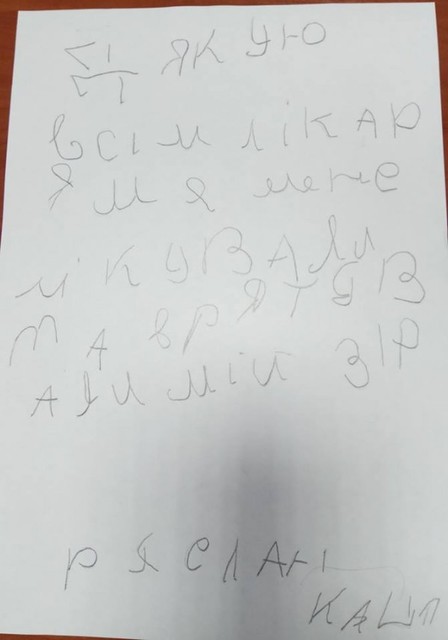 Дякую
всім лікар
ям я мене
лікували
та врятув
али мій зір
Руслан